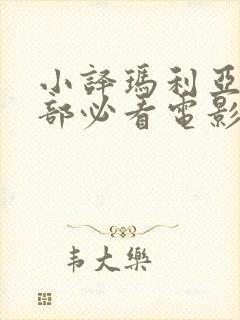 小譯瑪利亞
部必看電影
韦大樂